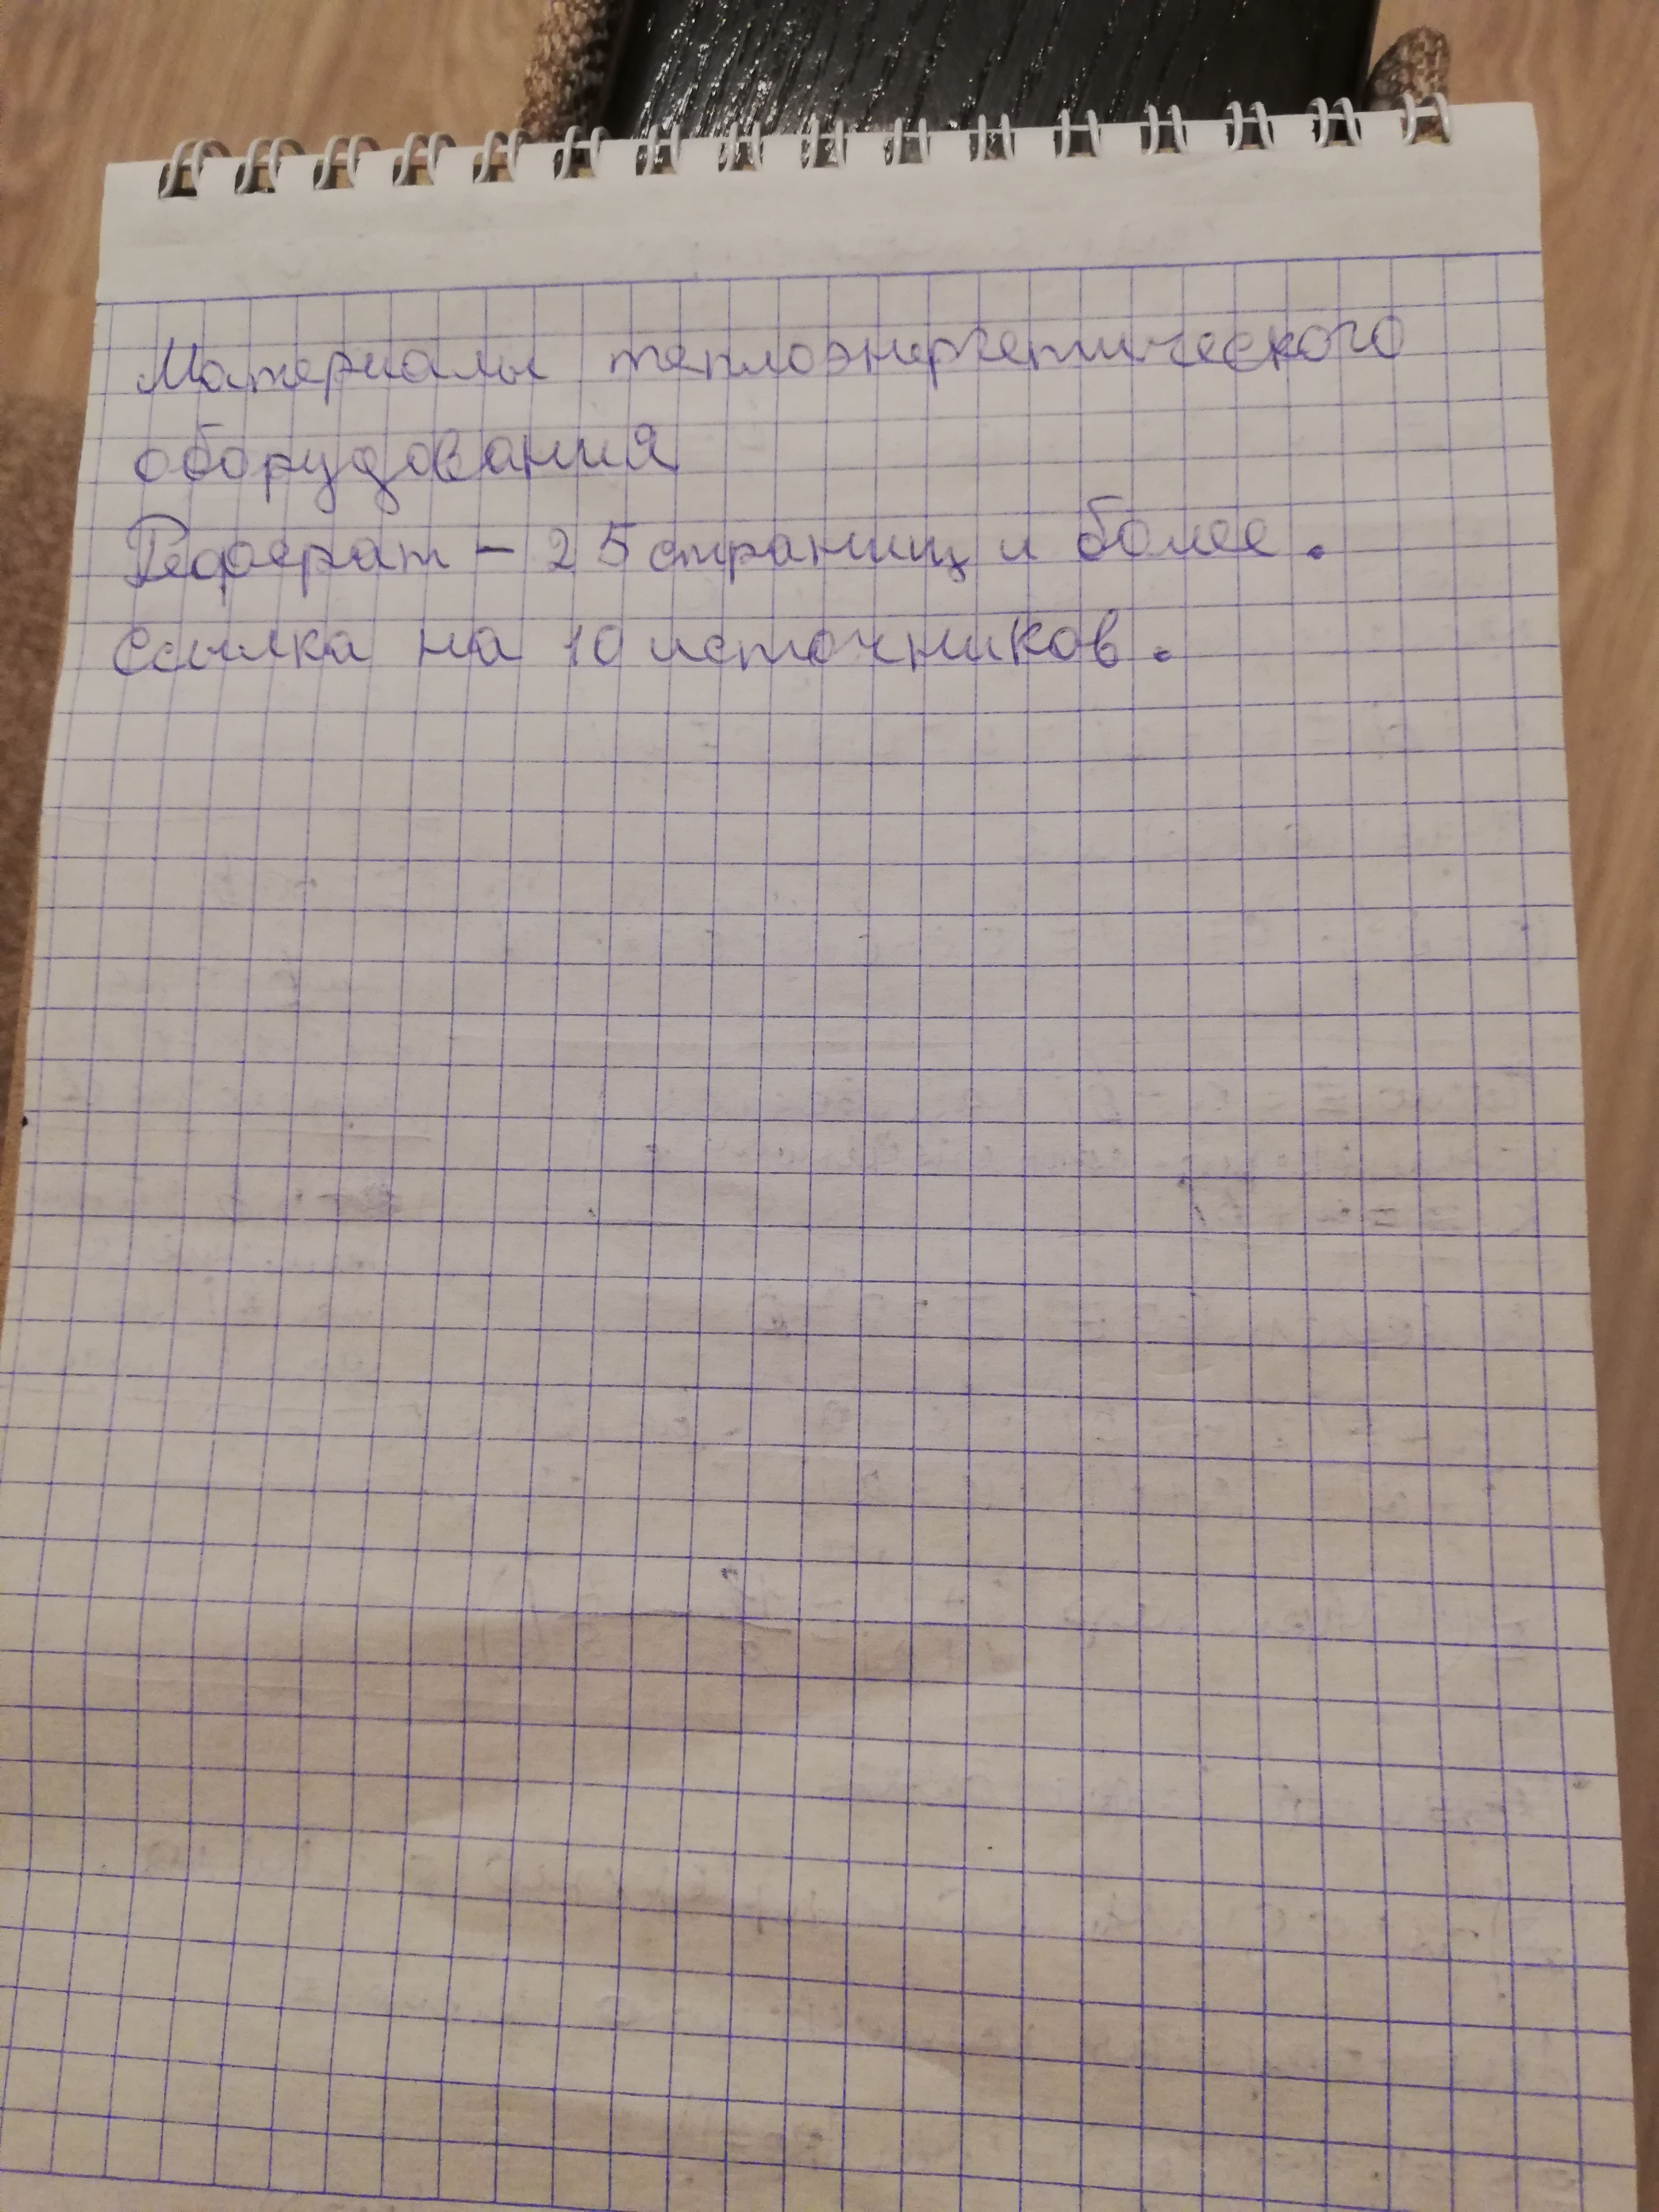 Материалы теплоэнергетического
оборудования
Реферат - 25 страниц и более.
Ссылка на 10 источников.